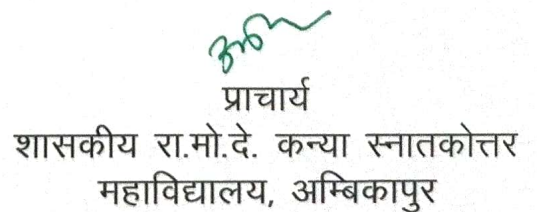 प्राचार्य
शासकीय रा.मो.दे. कन्या स्नातकोत्तर
महाविद्यालय, अम्बिकापुर